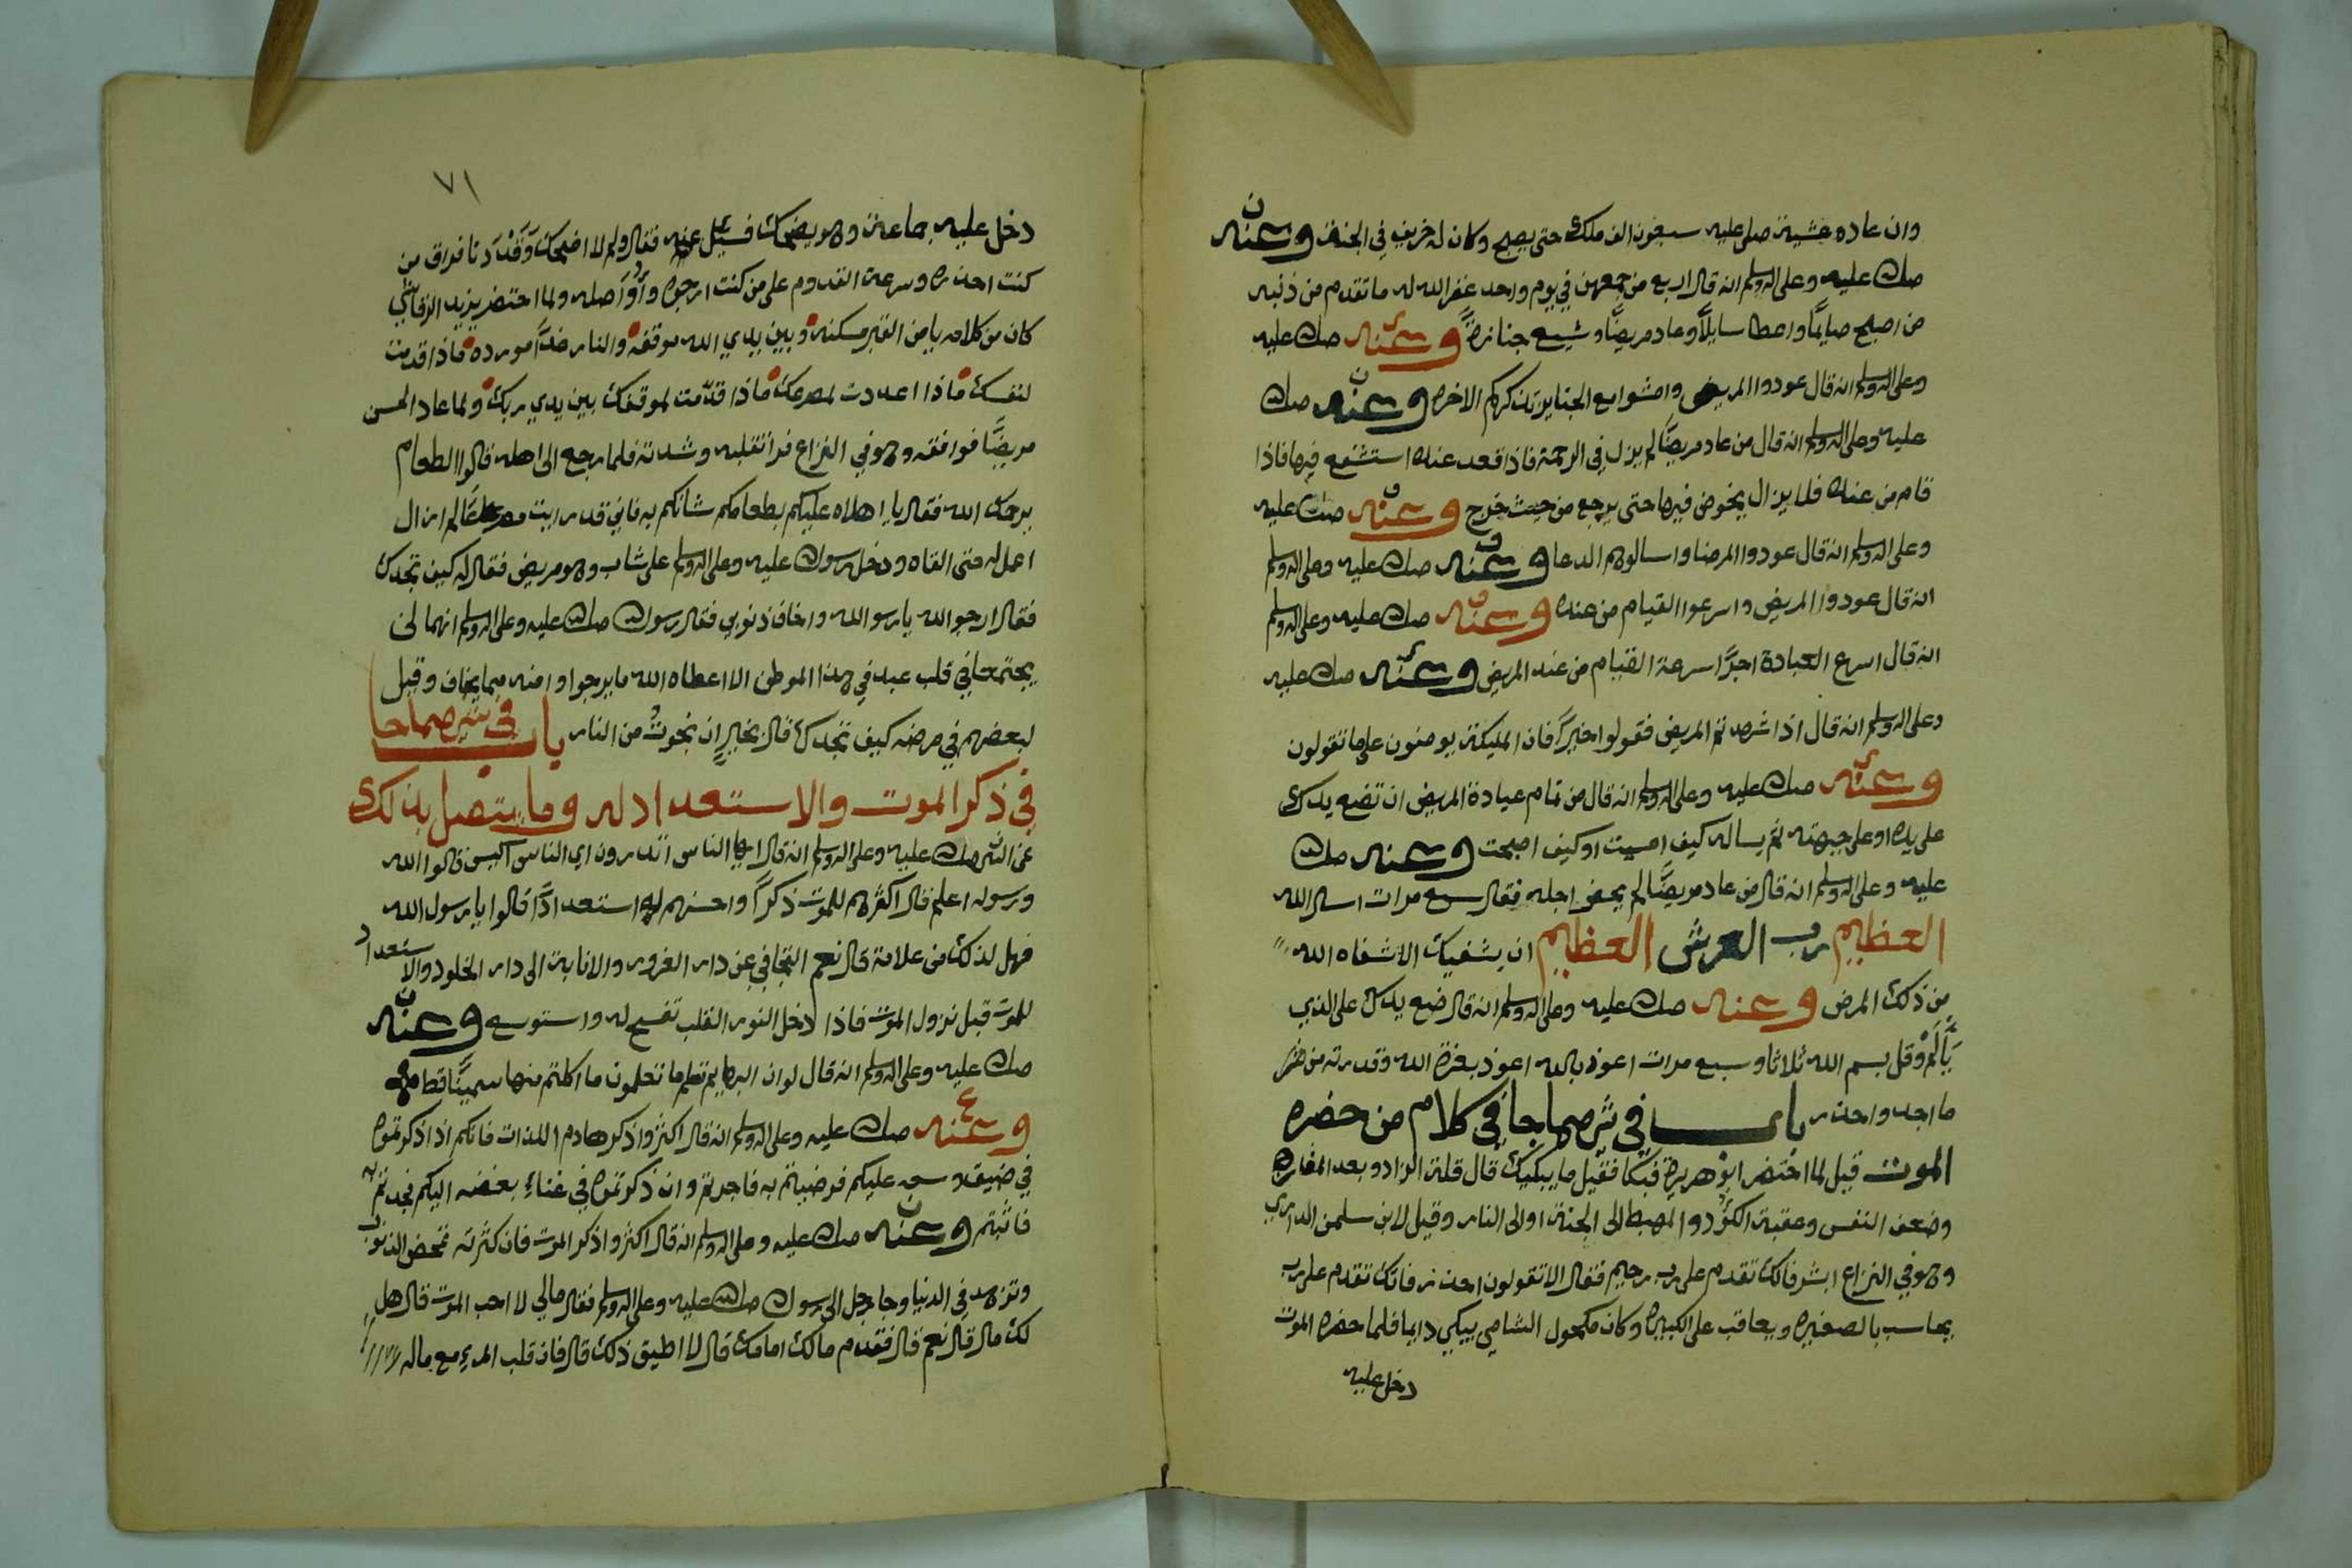 وان عاده عشية صلى عليه سبعون الف ملك حتى يصبح وكان له خريف في الجنة وعنه
صلى الله عليه وعلى اله وسلم انه قال اربع من جمعهن في يوم واحد غفر الله له ما تقدم من ذنبه
من اصبح صايمًا واعطا سايلًا وعاد مريضًا وشيع جنازة وعنه صلى الله عليه
وعلى اله وسلم انه قال عودوا المريض وامشوا مع الجنايز تذكركم الاخره وعنه صلى الله
عليه وعلى اله وسلم انه قال من عاد مريضًا لم يزل في الرحمة فاذا قعد عنده استنقع فيها فاذا
قام من عنده فلا يزال يخوض فيها حتى يرجع من حيث خرج وعنه صلى الله عليه
وعلى اله وسلم انه قال عودوا المرضا واسالوهم الدعا وعنه صلى الله عليه وعلى اله وسلم
انه قال عودوا المريض واسرعوا القيام من عنده وعنه صلى الله عليه وعلى اله وسلم
انه قال اسرع العيادة اجرًا سرعة القيام من عند المريض وعنه صلى الله عليه
وعلى اله وسلم انه قال اذا شهدتم المريض فقولوا خيرًا فان المليكة يومنون على ما تقولون
وعنه صلى الله عليه وعلى اله وسلم انه قال من تمام عيادة المريض ان تضع يدك
على يده او على جبهته ثم يساله كيف امسيت او كيف اصبحت وعنه صلى الله
عليه وعلى اله وسلم انه قال من عاد مريضًا لم يحض اجله فقال سبع مرات اسال الله
العظيم رب العرش العظيم ان يشفيك الا شفاه الله
من ذلك المرض وعنه صلى الله عليه وعلى اله وسلم انه قال ضع يدك على الذي
يَأْلَمُ وقل بسم الله ثلاثا وسبع مرات اعوذ بالله اعوذ بعزة الله وقدرته من شر
ما اجد واحذر باب في شرصماجا في كلام من حضره
الموت قيل لما احتضر ابو هريرة فبكا فقيل ما يبكيك قال قلة الزاد وبعد المفازة
وضعف النفس وعقبة الكؤد والمهبط الى الجنة او الى النار وقيل لابن سلمن الداري
وهو في النزاع ابشر فانك تقدم على رب رحيم فقال الا تقولون احذر فانك تقدم على رب
يحاسب بالصغيره ويعاقب على الكبيره وكان مكحول الشامي يبكي دايما فلما حضره الموت
دخل عليه
٧١
دخل عليه جماعة وهو يضحك فسيل عنه فقال ولم لا اضحك وَقَدْ دَنا فراق من
كنت احذره وسرعة القدوم على من كنت ارجوه وأُوَاصله ولما احتضر يزيد الرقاشي
كان من كلامه يا من القبر مسكنه وبين يدي الله موقفه والنار غدًا مورده ماذا قدمت
لنفسك ماذا اعددت لمصرعك ماذا قدّمت لموقفك بين يدي ربك ولما عاد الحسن
مريضًا فوافقه وهو في النزاع فرأ تقلبه وشدته فلما رجع الى اهله قالوا الطعام
يرحمك الله فقال يا اهلاه عليكم بطعامكم شانكم به فاني قد رايت مصرعًا لم ازال
اعمل له حتى القاه ودخل رسول الله عليه وعلى اله وسلم على شاب وهو مريض فقال له كيف تجدك
فقال ارجو الله يا رسو الله واخاف ذنوبي فقال رسول الله صلى الله عليه وعلى اله وسلم انهما لن
يجتمعا في قلب عبد في هذا الموطن الا اعطاه الله ما يرجوا وامنه مما يخاف وقيل
لبعضهم في مرضه كيف تجدك قال بخيرٍ ان نجوتُ من النار باب في شرصماجا
في ذكر الموت والاستعداد له وما يتصل بذلك
عن النبي صلى الله عليه وعلى اله وسلم انه قال ايها الناس اتدرون اي الناس اكيس قالوا الله
ورسوله اعلم قال اكثرهم للموت ذكرًا واحسنهم له استعدادًا قالوا يا رسول الله
فهل لذلك من علامة قال نعم التجافي عن دار الغرور والانابة الى دار الخلود والاستعداد
للموت قبل نزول الموت فاذا دخل النور القلب تفسح له واستوسع وعنه
صلى الله عليه وعلى اله وسلم انه قال لو ان البهايم تعلم ما تعلمون ما اكلتم منها سمينًا قط
وعنه صلى الله عليه وعلى اله وسلم انه قال اكثروا ذكر هادم اللذات فانكم اذا ذكرتموه
في ضيق وسعه عليكم فرضيتم به فاجرتم وان ذكرتموه في غناءٍ بغضه اليكم فجدتم به
فاثبتم وعنه صلى الله عليه وعلى اله وسلم انه قال اكثروا ذكر الموت فان كثرته تمحض الذنوب
وتزهد في الدنيا وجا رجل الى رسول الله صلى الله عليه وعلى اله وسلم فقال مالي لا احب الموت قال هل
لك مال قال نعم قال فقدم مالك امامك قال لا اطيق ذلك قال فان قلب المرءِ مع ماله